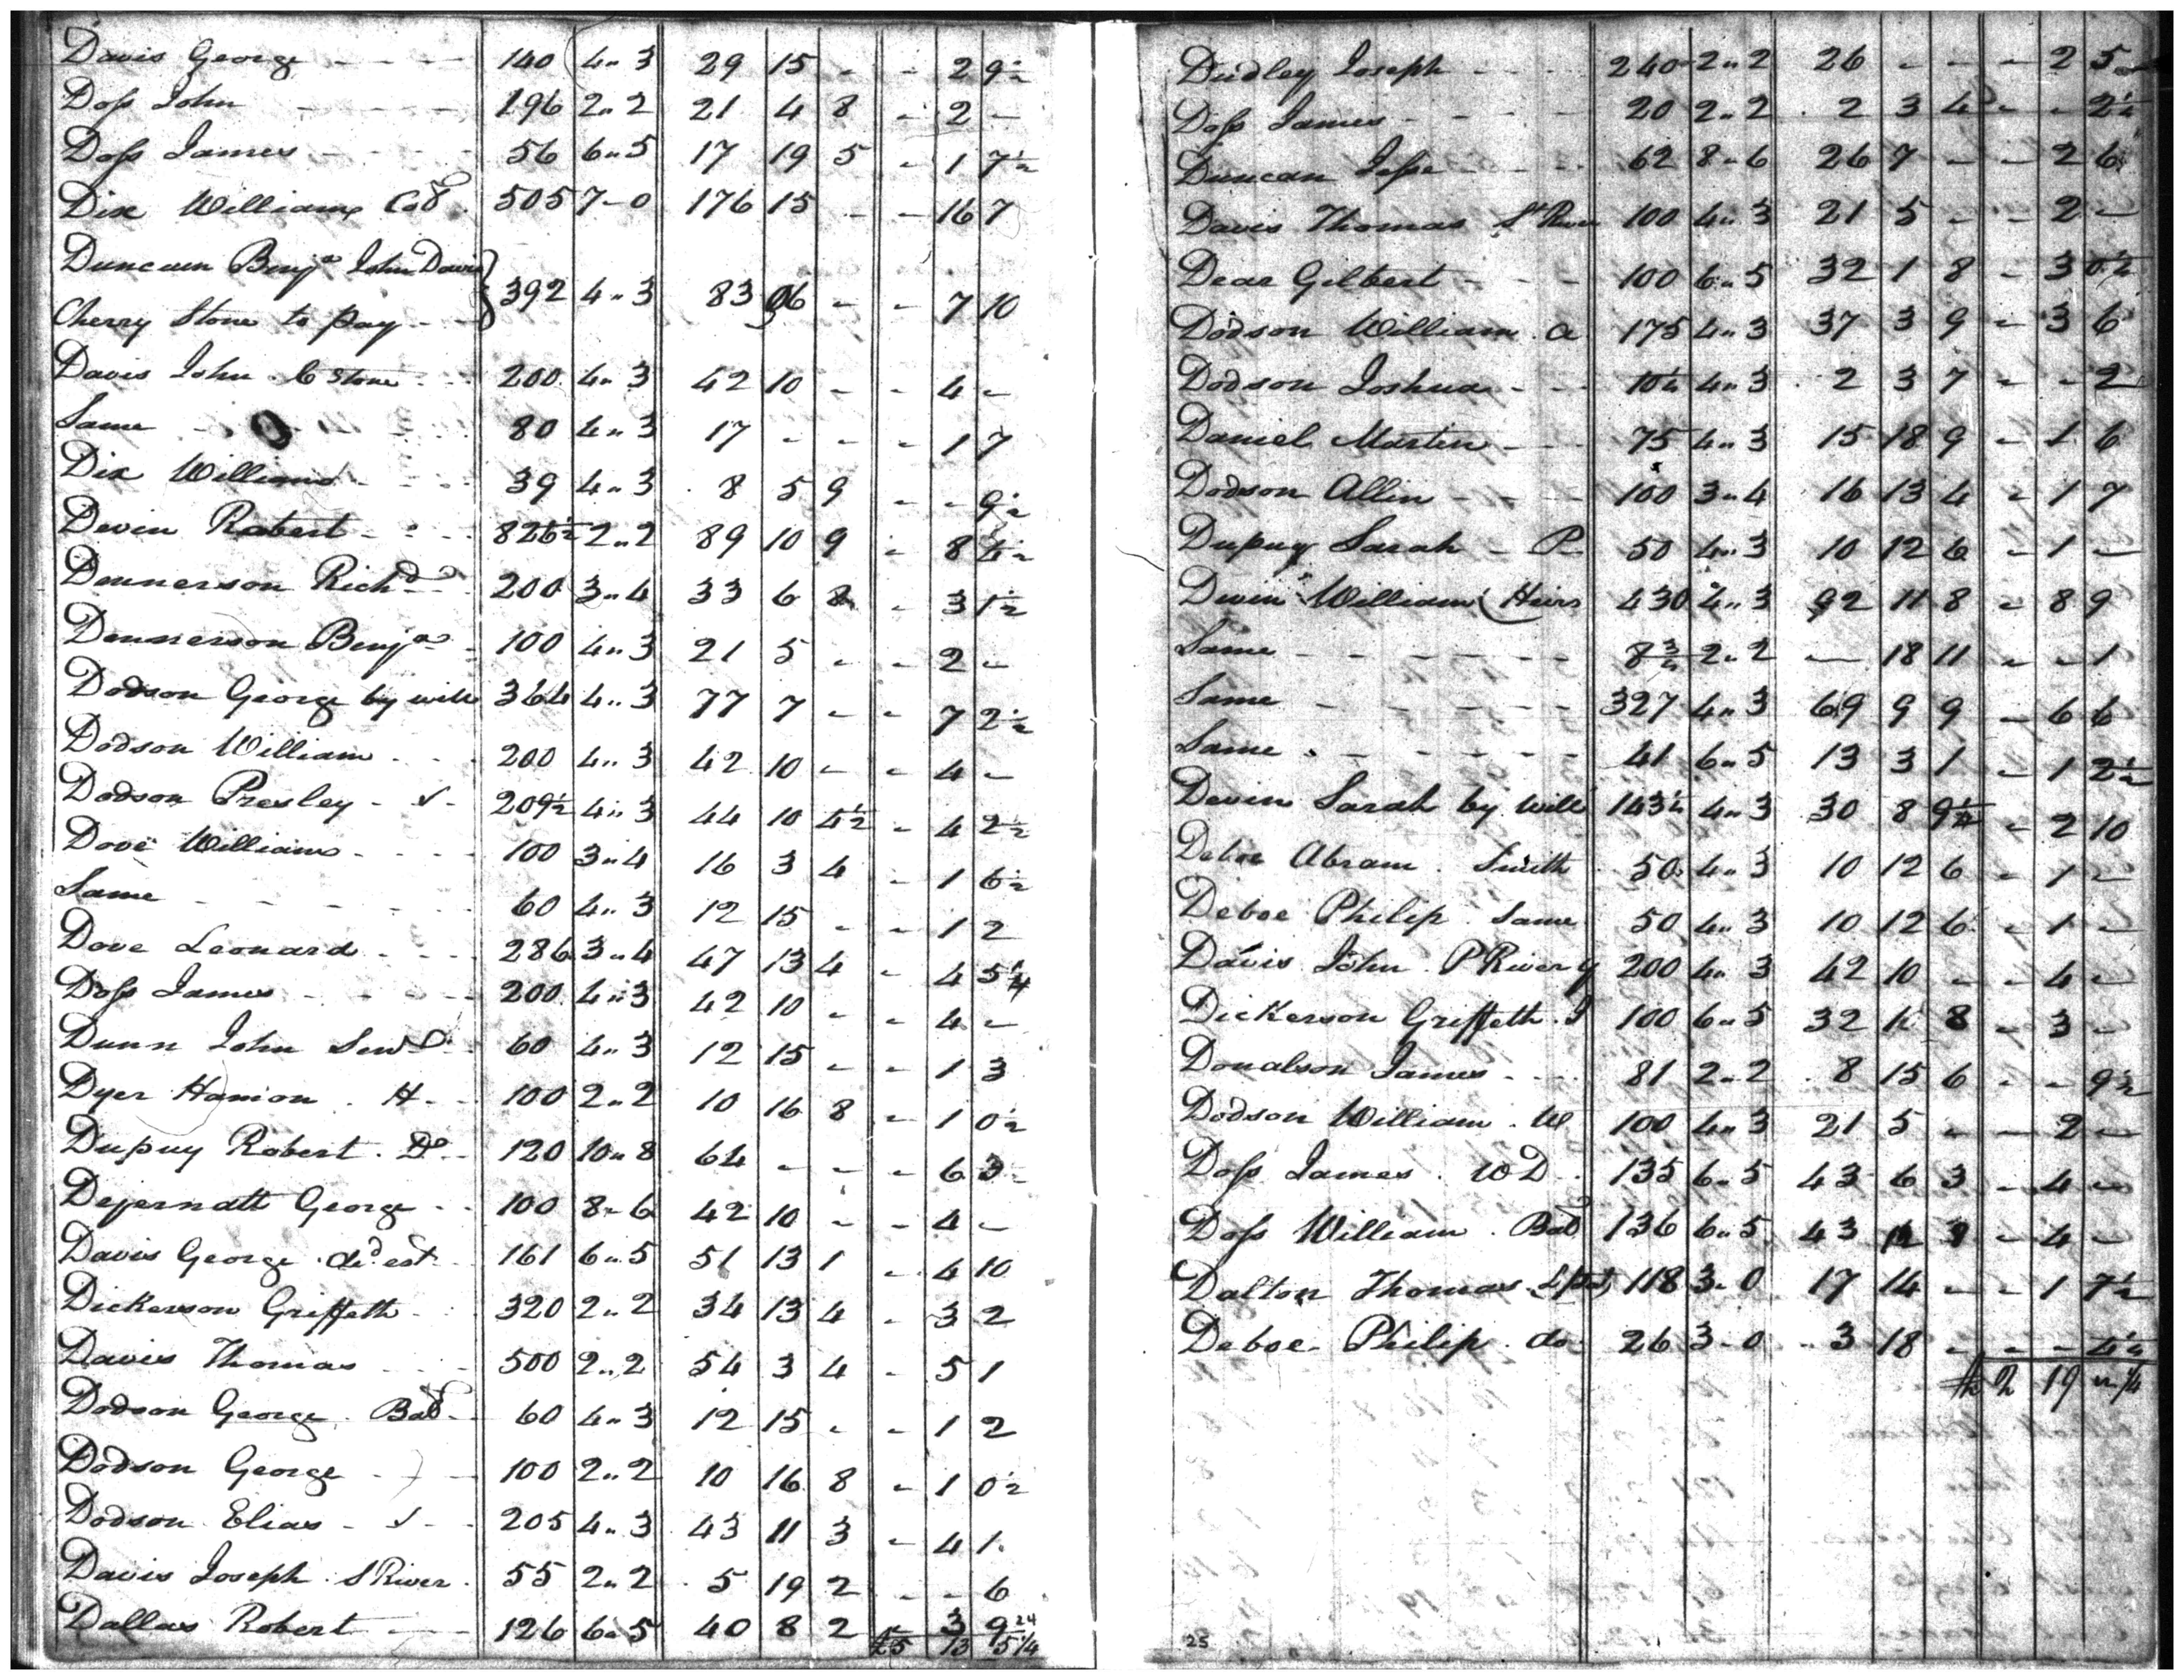 Davis George - - - - 140 4 " 3 29 15 - - 2 9½
Doss John - - - - 196 2 " 2 21 4 8 - 2 -
Doss James - - - - 56 6 " 5 17 19 5 - 1 7½
Dix William Cod 505 7 - 0 176 15 - - 16 7
Duncan Benja John Davis
Cherry Stone to pay - - } 392 4 " 3 83 6 - - 7 10
Davis John . C Stone 200 4 " 3 42 10 - - 4 -
Same 80 4 " 3 17 - - - 1 7
Dix William 39 4 " 3 8 5 9 - - 9½
Devin Robert 826½ 2 " 2 89 10 9 - 8
Dennerson Richd 200 3 " 4 33 6 8 - 3 1½
Dennerson Benja 100 4 " 3 21 5 - - 2 -
Dodson George by will 364 4 " 3 77 7 - - 7 2½
Dodson William 200 4 " 3 42 10 - - 4 -
Dodson Presley - S - 209½ 4 " 3 44 10 4½ - 4 2½
Dove William 100 3 " 4 16 3 4 - 1 6½
Same 60 4 " 3 12 15 - - 1 2
Dove Leonard 286 3 " 4 47 13 4 - 4 5¼
Doss James 200 4 " 3 42 10 - - 4 -
Dunn John 60 4 " 3 12 15 - - 1 3
Dyer Hamon . H - 100 2 " 2 10 16 8 - 1 0½
Dupuy Robert . De 120 10 " 8 64 - - - 6 3
Dejernatt George 100 8 " 6 42 10 - - 4 -
Davis George ded est 161 6 " 5 51 13 1 - 4 10
Dickerson Griffeth 320 2 " 2 34 13 4 - 3 2
Davis Thomas 500 2 " 2 54 3 4 - 5 1
Dodson George . Bad 60 4 " 3 12 15 - - 1 2
Dodson George 100 2 " 2 10 16 8 - 1 0½
Dodson Elias - S - 205 4 " 3 43 11 3 - 4 1
Davis Joseph . S River 55 2 " 2 5 19 2 - - 6
Dallas Robert 126 6 " 5 40 8 2 3 9
£5 13 5¼
Dudley Joseph 240 2 " 2 26 - - - 2 5
Doss James 20 2 " 2 2 3 4 - - 2½
Duncan Jesse 62 8 - 6 26 7 - - 2 6
Davis Thomas St River 100 4 " 3 21 5 - - 2 -
Dear Gilbert 100 6 " 5 32 1 8 - 3 0½
Dodson William . a 175 4 " 3 37 3 9 - 3 6
Dodson Joshua 10¼ 4 " 3 2 3 7 - - 2
Daniel Martin 75 4 " 3 15 18 9 - 1 6
Dodson Allin 100 3 " 4 16 13 4 - 1 7
Dupuy Sarah - P - 50 4 " 3 10 12 6 - 1 -
Devin William (Heirs 430 4 " 3 92 11 8 - 8 9
Same 8¾ 2 " 2 - 18 11 - - 1
Same 327 4 " 3 69 9 9 - 6 6
Same 41 6 " 5 13 3 1 - 1 2½
Devin Sarah by will 143¼ 4 " 3 30 8 9¼ - 2 10
Deboe Abram . Smith 50 4 " 3 10 12 6 - 1 -
Deboe Philip . Same 50 4 " 3 10 12 6 - 1 -
Davis John . P River 200 4 " 3 42 10 - - 4 -
Dickerson Griffeth . J 100 6 " 5 32 1 8 - 3 -
Donalson James 81 2 " 2 8 15 6 - - 9½
Dodson William . W 100 4 " 3 21 5 - - 2 -
Doss James . W D . 135 6 " 5 43 6 3 - 4 -
Doss William . Bad 136 6 " 5 43 - 4 -
Dalton Thomas 118 3 " 0 17 14 - - 1 7½
Deboe Philip . do 26 3 - 0 3 18 - - - 4¼
2 19
25